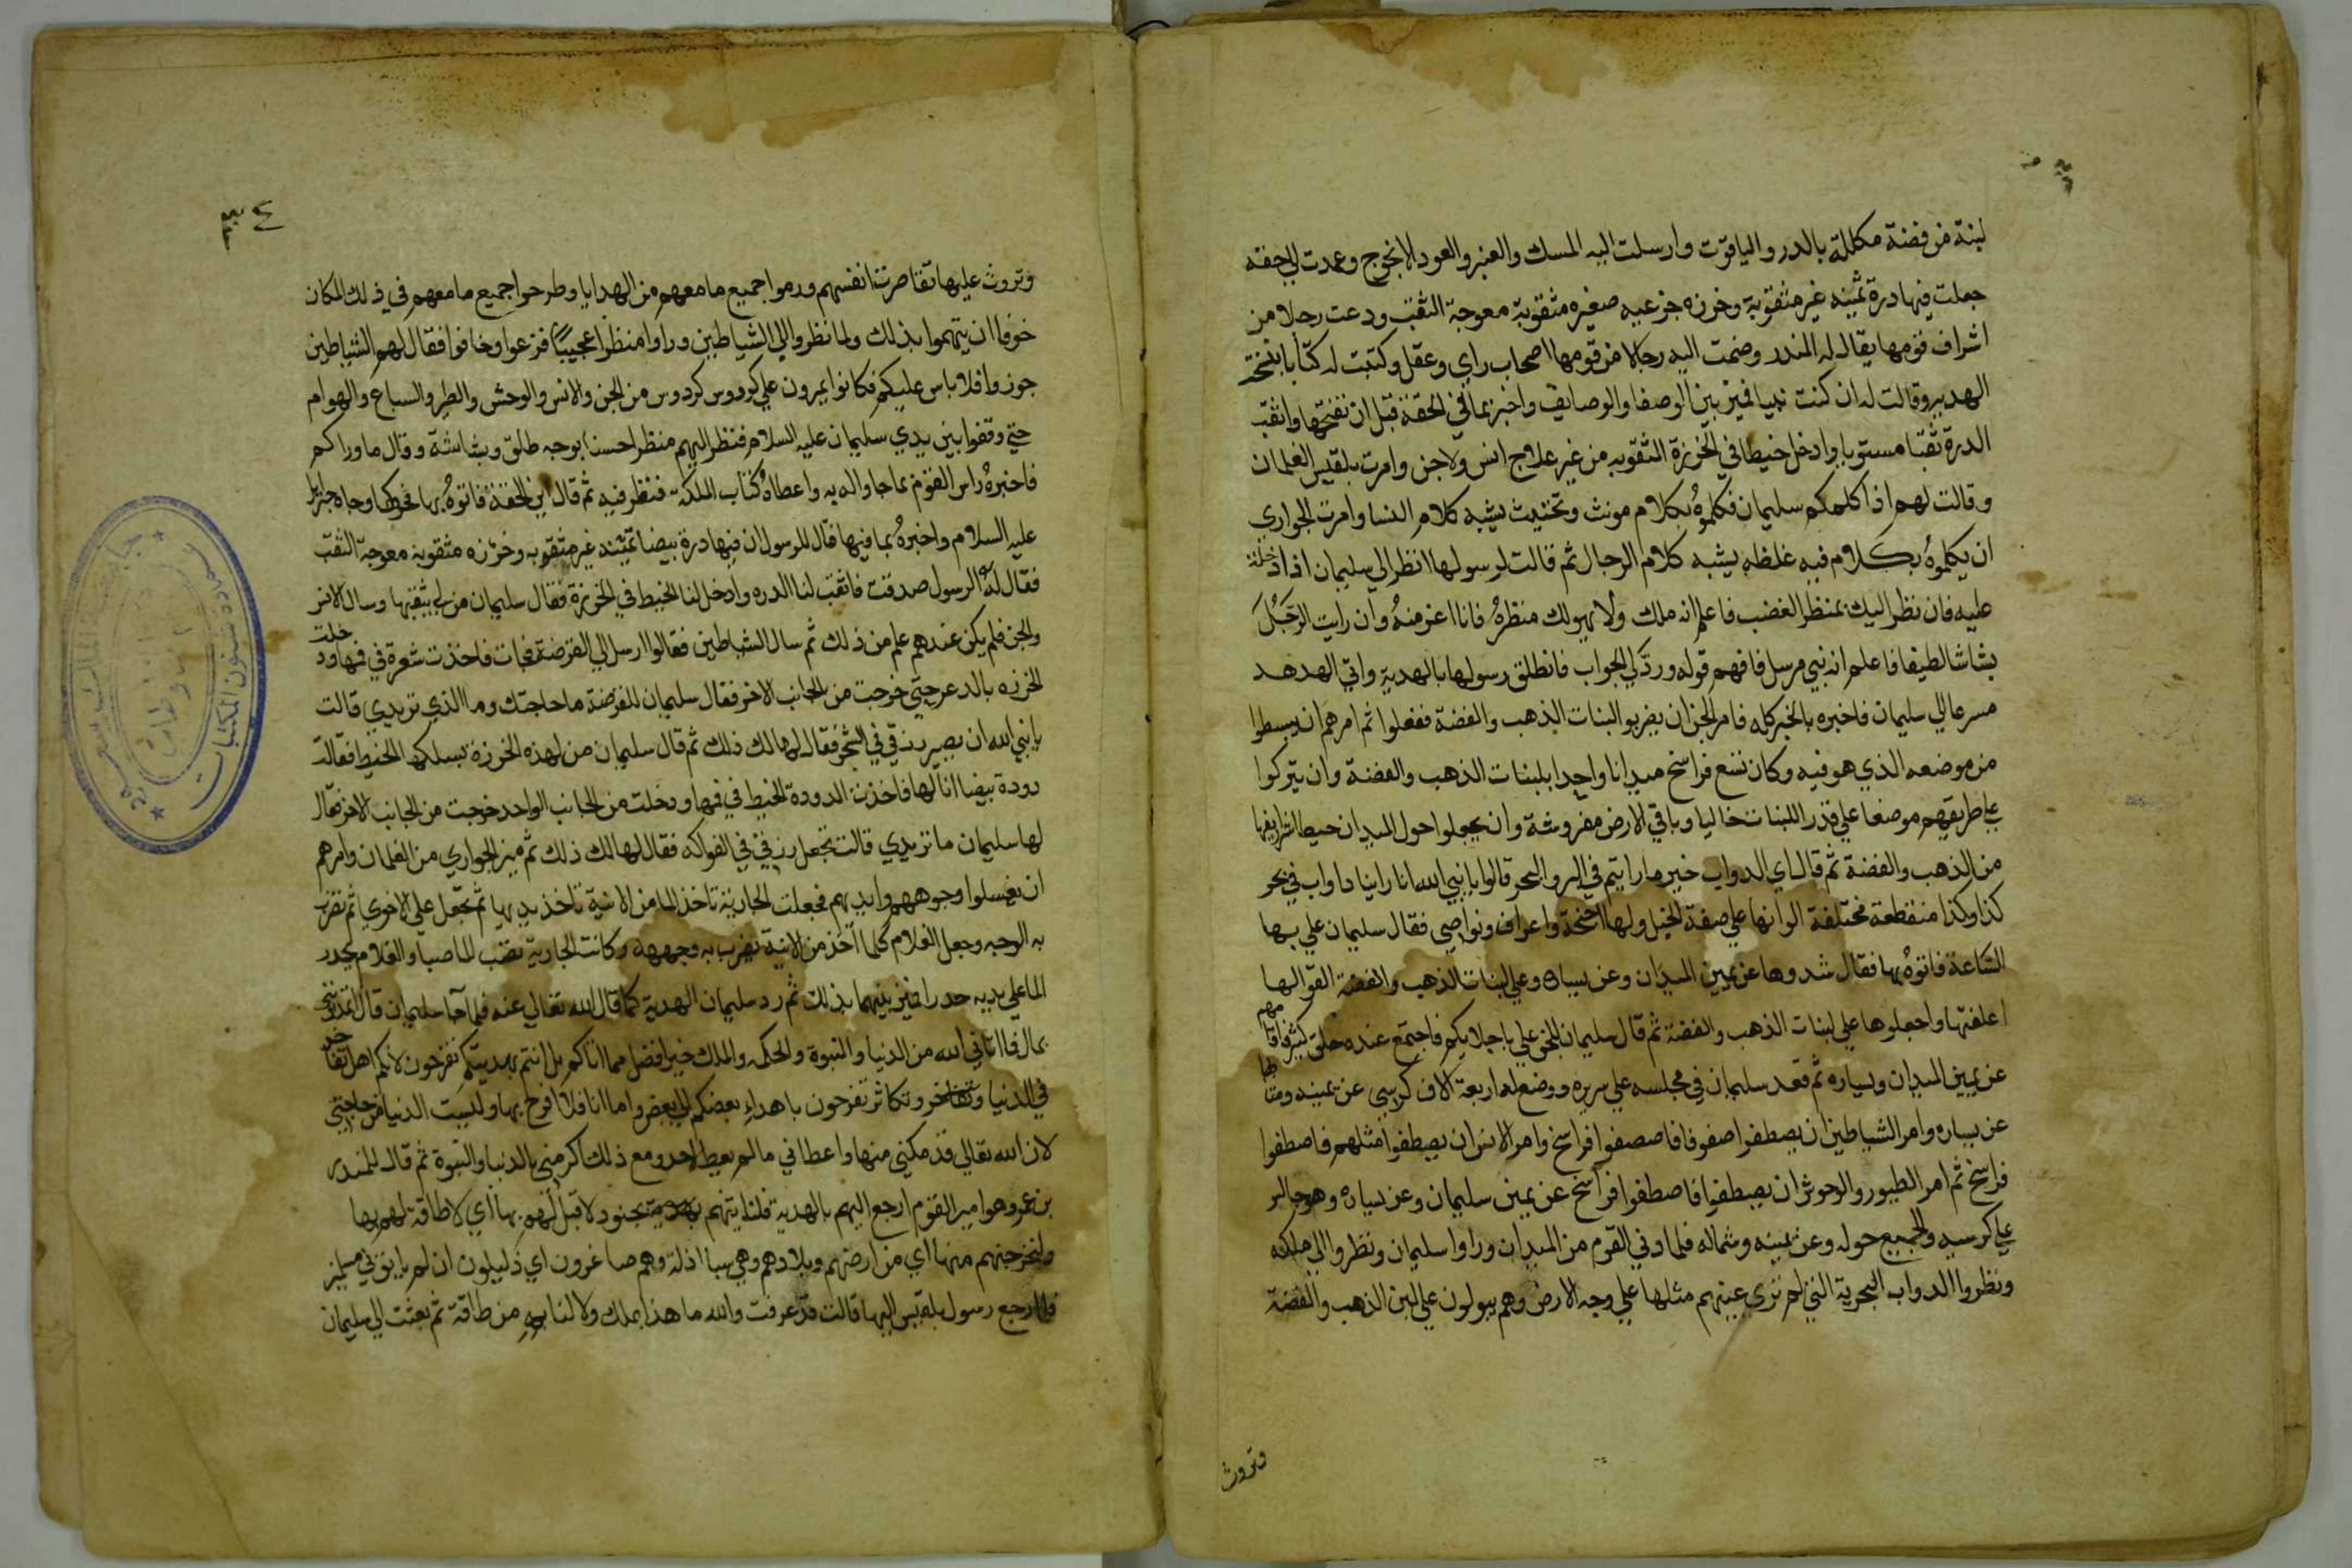 لبنة من فضة مكللة بالدر والياقوت وارسلت اليه المسك والعنبر والعود الانجوج وعمدت الي حقة
جعلت فيها درة ثمينه غير مثقوبة وخرزه جزعيه صغيره مثقوبة معوجة الثقب ودعت رجلا من
اشراف قومها يقال له المنذر وضمت اليه رجالا من قومها اصحاب راي وعقل وكتبت له كتابا بنسخة
الهديه وقالت له ان كنت نبيا فميز بين الوصفا والوصايف واخبر بما في الحقة قبل ان تفتحها واثقب
الدرة ثقبا مستويا وادخل خيطا في الخرزة المثقوبه من غير علاج انس ولا جن وامرت بلقيس الغلمان
وقالت لهم اذا كلمكم سليمان فكلموه بكلام مونث وتخنيث يشبه كلام النسا وامرت الجواري
ان يكلموه بكلام فيه غلظه يشبه كلام الرجال ثم قالت لرسولها انظر الي سليمان اذا دخلت
عليه فان نظر اليك بمنظر الغضب فاعلم انه ملك ولا يهولك منظره فانا اعز منه وان رايت الرجل
بشاشا لطيفا فاعلم انه نبي مرسل فافهم قوله ورد لي الجواب فانطلق رسولها بالهدية واتي الهدهد
مسرعا الي سليمان فاخبره بالخبر كله فامر الجن ان يضربو البنات الذهب والفضة ففعلوا ثم امرهم ان يبسطوا
من موضعه الذي هو فيه وكان تسع فراسخ ميدانا واحدا بلبنات الذهب والفضة وان يتركوا
علي طريقهم موضعا علي قدر اللبنات خاليا وباقي الارض مفروشة وان يجعلوا حول الميدان حيطا شراريفها
من الذهب والفضة ثم قال اي الدواب خير ما رايتم في البر والبحر قالوا يا نبي الله انا راينا دواب في بحر
كذا وكذا منقطعة مختلفة الوانها علي صفة الخيل ولها اجنحة واعراف ونواصي فقال سليمان علي بها
الساعة فاتوه بها فقال شدوها عن يمين الميدان وعن يساره وعلي لبنات الذهب والفضة القوا لها
اعلفتها واجعلوها علي لبنات الذهب والفضة ثم قال سليمان للجن علي باجلايكم فاجتمع عنده خلق كثير فاقامهم
عن يمين الميدان ويساره ثم قعد سليمان في مجلسه علي سريره ووضع له اربعة الاف كرسي عن يمينه ومثلها
عن يساره وامر الشياطين ان يصطفوا صفوفا فاصصفوا فراسخ وامر الانس ان يصطفوا مثلهم فاصطفوا
فراسخ ثم امر الطيور والوحوش ان يصطفوا فاصطفوا فراسخ عن يمين سليمان وعن يساره وهو جالس
علي كرسيه والجميع حوله وعن يمينه وشماله فلما دني القوم من الميدان وراوا سليمان ونظروا الي ملكه
ونظروا الدواب البحرية التي لم تري عينهم مثلها علي وجه الارض وهم يبولون علي لبن الذهب والفضة
وتروث
٣٤
وتروث عليها تقاصرت انفسهم ورموا جميع ما معهم من الهدايا وطرحوا جميع ما معهم في ذلك المكان
خوفا ان يتهموا بذلك ولما نظروا الي الشياطين وراوا منظرا عجيبا فزعوا وخافوا فقال لهم الشياطين
جوزوا فلا باس عليكم فكانوا يمرون علي كردوس كردوس من الجن والانس والوحش والطير والسباع والهوام
حتي وقفوا بين يدي سليمان عليه السلام فنظر اليهم منظرا حسنا بوجه طلق وبشاشة وقال ما وراكم
فاخبره راس القوم بما جاوا له به واعطاه كتاب الملكة فنظر فيه ثم قال اين الحقة فاتوه بها فحركها وجاه جبرايل
عليه السلام واخبره بما فيها قال للرسول ان فيها درة بيضا ثمينه غير مثقوبه وخرزه مثقوبة معوجة الثقب
فقال له الرسول صدقت فاثقب لنا الدره وادخل لنا الخيط في الخرزة فقال سليمان من لي بثقبها وسال الانس
والجن فلم يكن عندهم علم من ذلك ثم سال الشياطين فقالوا ارسل الي القرضة فجات فاخذت شعرة في فمها ودخلت
الخرزه بالدعر حتي خرجت من الجانب الاخر فقال سليمان للقرضة ما حاجتك وما الذي تريدي قالت
يا نبي الله ان يصير رزقي في الشجر فقال لها لك ذلك ثم قال سليمان من لهذه الخرزة يسلكها الخيط فقالت
دودة بيضا انا لها فاخذت الدودة الخيط في فمها ودخلت من الجانب الواحد خرجت من الجانب الاخر فقال
لها سليمان ما تريدي قالت تجعل رزقي في الفواكه فقال لها لك ذلك ثم ميز الجواري من الغلمان وامرهم
ان يغسلوا وجوههم وايديهم فجعلت الجارية تاخذ الما من الانية تاخذ بيديها ثم تجعل علي الاخري ثم تضرب
به الوجه وجعل الغلام كلما اخذ من الانية يضرب به وجهه وكانت الجارية تصب الما صبا والغلام يحدر
الما علي يديه حدرا فميز بينهما بذلك ثم رد سليمان الهدية كما قال الله تعالي عنه فلما جا سليمان قال اتمدونني
بمال فما اتاني الله من الدنيا والنبوة والحكمه والملك خير افضل مما اتاكم بل انتم بهديتكم تفرحون لانكم اهل تفاخر
في الدنيا وتفاخر وتكاثر تفرحون باهداء بعضكم الي بعض واما انا فلا افرح بها وليست الدنيا من حاجتي
لان الله تعالي قد مكني منها واعطاني ما لم يعط احد ومع ذلك اكرمني بالدنيا والنبوة ثم قال للمنذر
بن عمرو هو امير القوم ارجع اليهم بالهدية فلناتينهم بجنود لا قبل لهم بها اي لا طاقة لهم بها
ولنخرجنهم منها اي من ارضهم وبلادهم وهي سبا اذلة وهم صاغرون اي ذليلون ان لم ياتوني مسلمين
فلما رجع رسول بلقيس اليها قالت قد عرفت والله ما هذا بملك ولا لنا به من طاقة ثم بعثت الي سليمان